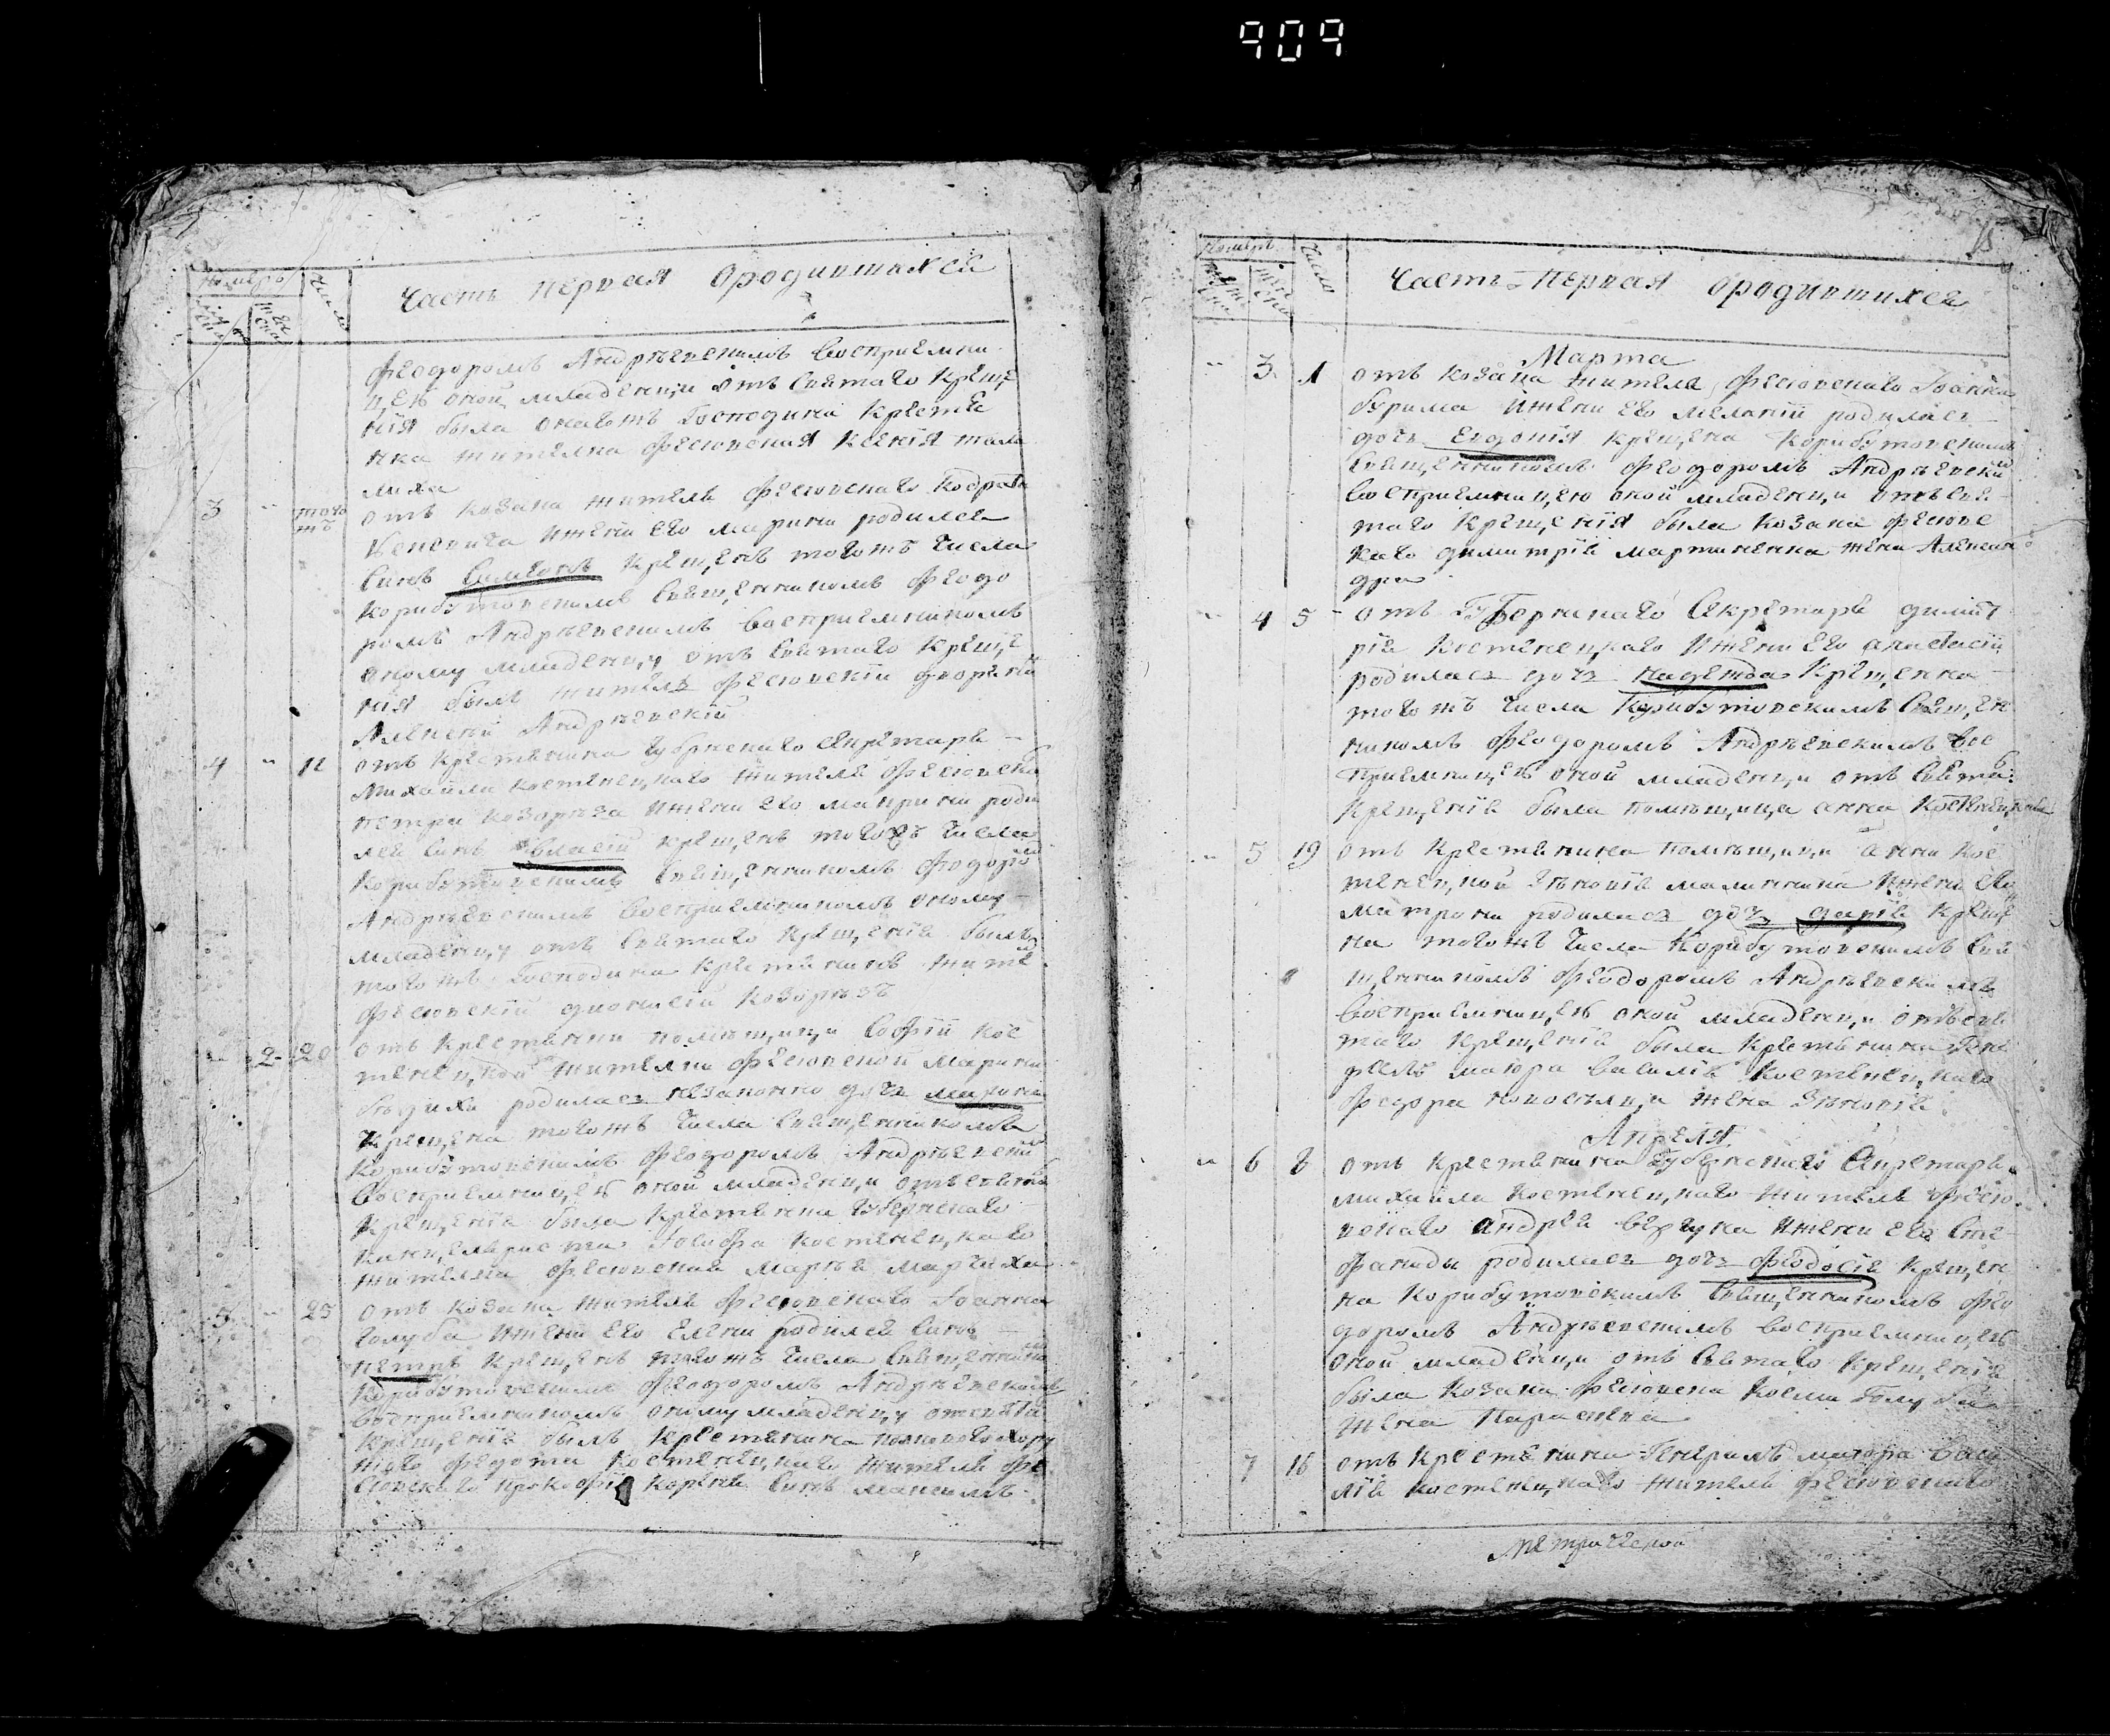 909
Номеръ
Число
Часть первая ородившихся
Феодоромъ Андрѣевскимъ воспріемни
цею оной младенци отъ святаго креще
нія была онаготъ Господина крестья
нка жителка Фесювская Ксенія
лиха
3 - того жъ отъ козака жителя Фесювскаго Кодрата
и жени его марини родился
синъ Симеонъ крещенъ тогожъ числа
Корибутовскимъ священникомъ Феодо
ромъ Андрѣевскимъ воспріемникомъ
оному младенцу отъ святаго креще
нія былъ житель Фесювскій дворянинъ
Алексѣй Андрѣевскій
4 - 11 отъ крестьянина губрнскаго секретаря
Михайла костенецкаго жителя Фесювска
петра козорѣза и жени его родил
ся синъ власій крещенъ тогожъ числа
Корибутовскимъ священникомъ Феодоро
Андрѣевскимъ воспріемникомъ оному
младенцу отъ святаго крещенія былъ
тогожъ Господина крестянинъ жите
Фесювскій дионисій козорѣзъ
- 2 20 отъ крестянки помѣщици Софіи кос
тенецкой жителки Фесювской Марини
родилась незаконно дочъ марина
крещена тогожъ числа священникомъ
Корибутовскимъ Феодоромъ Андрѣевски
воспріемницею оной младенци отъ святаго
крещенія была крестянка губернскаго
канцеляриста Іосифа костенецкаго
жителка Фесювская Марѣя
5 - 25 отъ козака жителя Фесювскаго Іоанна
голуба и жени его Елени родился синъ
петръ крещенъ тогожъ числа священнико
Корибутовскимъ Феодоромъ Андрѣевскимъ
воспріемникомъ оному младенцу отъ свята
крещенія былъ крестянина полковаго хору
жаго Федота костенецкаго жителя Фе
сювскаго прокофія синъ максимъ
15
Номеръ
Число
Часть Первая ородившихся
Марта
- 3 1 отъ козака жителя Фесювскаго Іоанна
бурима и жени его меланіи родилась
дочъ Евдокія крещена Корибутовскимъ
священникомъ Феодоромъ Андрѣевски
воспріемницею оной младенци отъ свя
таго крещенія была козака Фесювс
каго димитрія мартиненка жена Алексан
дра
- 4 5 отъ Губернскаго Секретаря димит
рія костенецкаго и жени его анастасіи
родилась дочъ надежда крещенна
тогожъ числа Корибутовскимъ свящ,ен
никомъ Феодоромъ Андрѣевскимъ вос
пріемницею оной младенци отъ свята
крещенія была помѣщица анна костенецкая
- 5 19 отъ крестянина помѣщици анни кос
тенецкой Зѣновія малиннина и жени его
матрони родилась дочъ дарія креще
на тогожъ числа Корибутовскимъ свя
щенникомъ Феодоромъ Андрѣевскимъ
воспріемницею оной младенци отъ свя
таго крещенія была крестянина гене
ралъ маіора василія костенецкаго
Федора жена Зѣновія
Апреля
- 6 8 отъ крестянина Губернскаго Секретаря
михайла костенецкаго жителя Фесю
вскаго андрея и жени его сте
фаниды родилась дочъ Феодосія крещен
на Корибутовскимъ священникомъ Фео
доромъ Андрѣевскимъ воспріемницею
оной младенци отъ святаго крещенія
была козака Фесювска косми Голуба
жена Параскева
7 16 отъ крестянина Генералъ маіора васи
лія костенецкаго жителя Фесювскаго